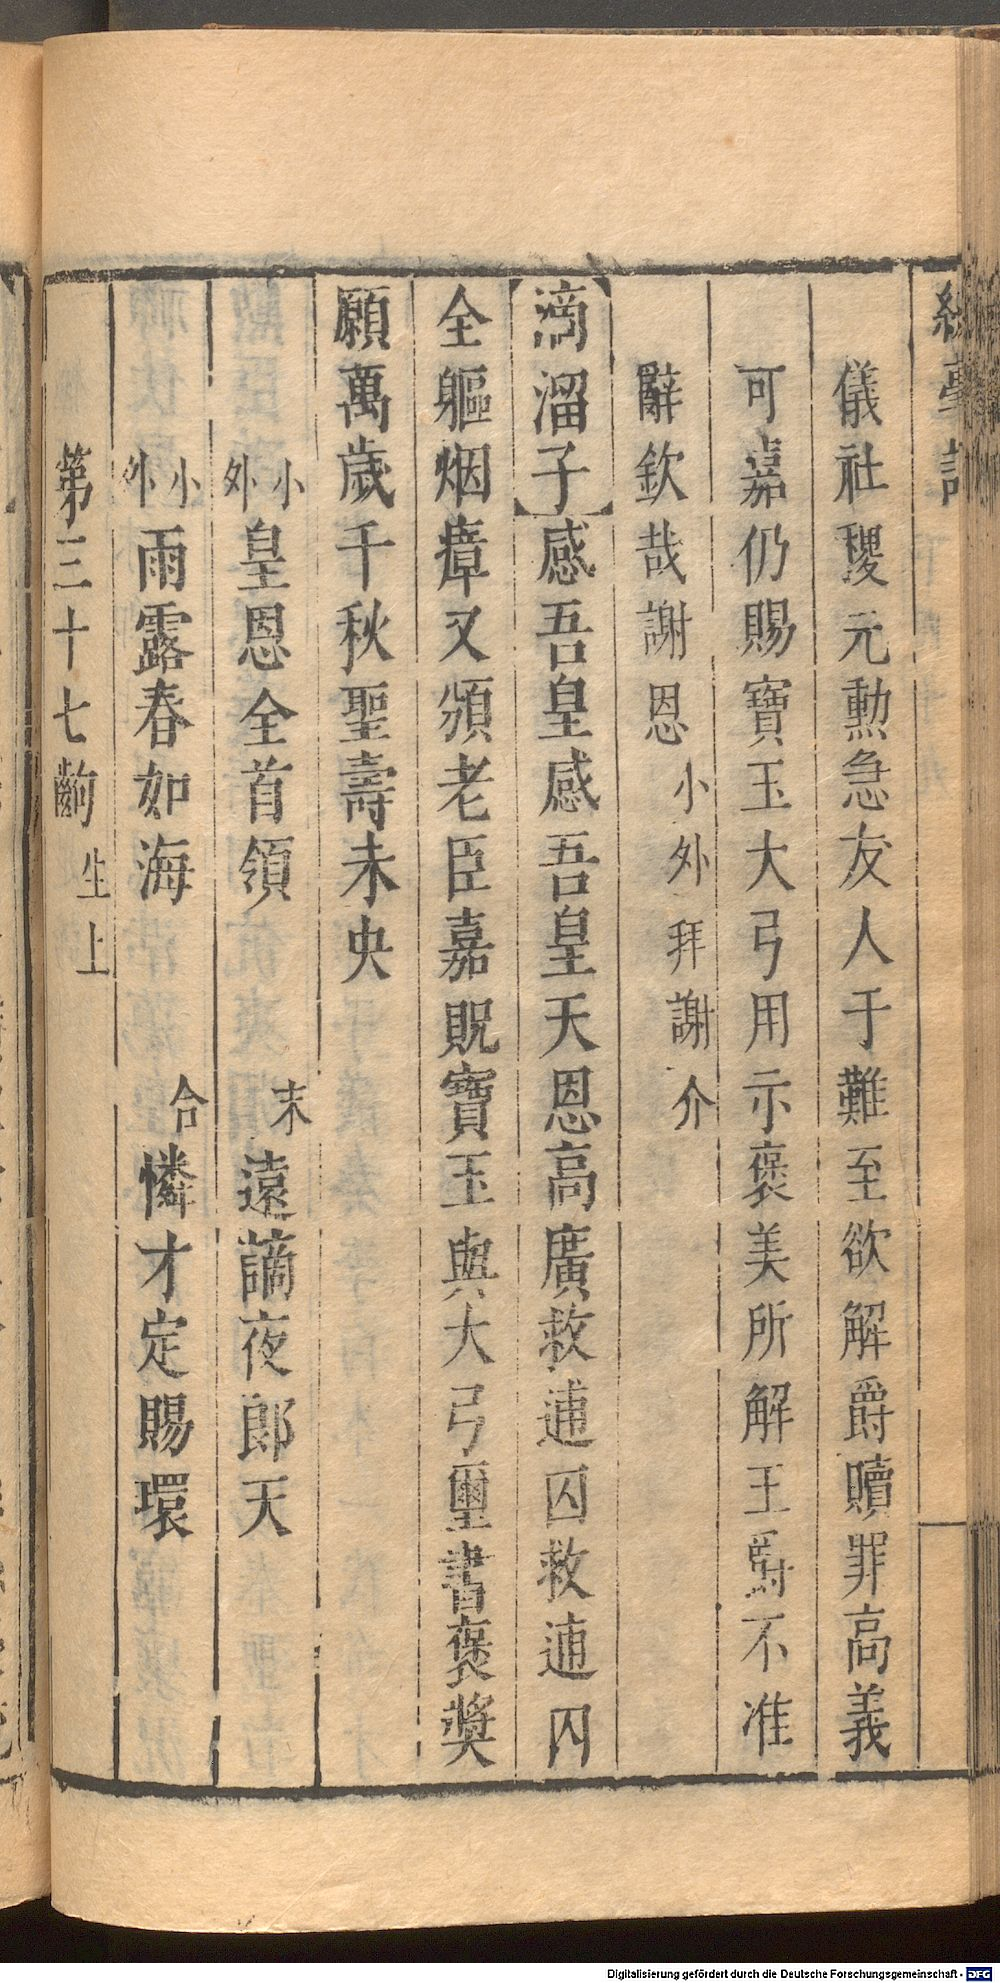 綵毫記
儀社稷元勳急友人于難至欲解爵贖罪高義
可嘉仍賜寶玉大弓用示褒美所解王爵不准
辭欽哉謝恩小外拜謝介
【滴溜子】感吾皇感吾皇天恩高廣救逋囚救逋囚
全軀烟瘴又頒老臣嘉貺寶玉與大弓璽書褒奬
願萬歲千秋聖壽未央
小外皇恩全首領 末遠謫夜郎天
小外雨露春如海 合憐才定賜環
第三十七齣生上
Digitalisierung gefördert durch die Deutsche Forschungsgemeinschaft - DFG